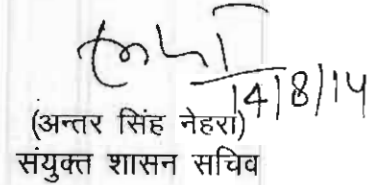 14/8/14
(अन्तर सिंह नेहरा)
संयुक्त शासन सचिव